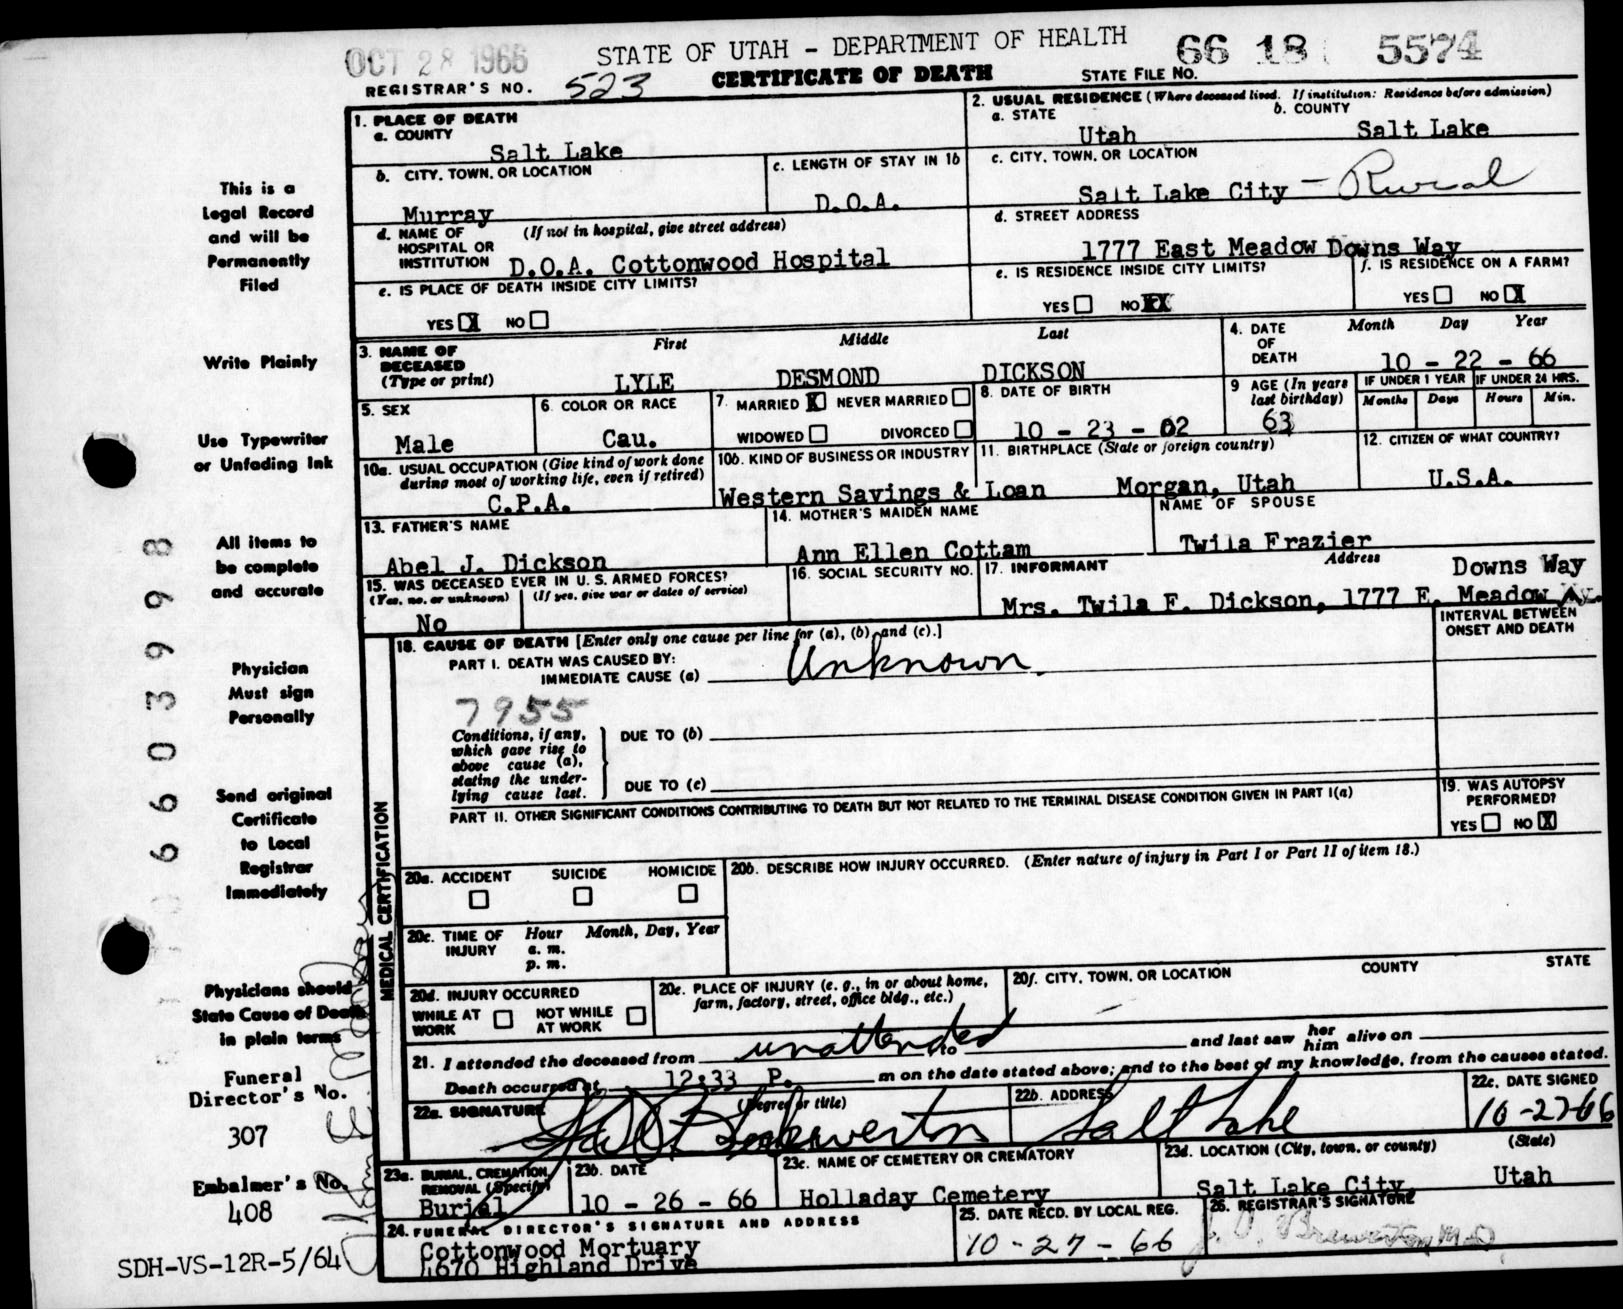 OCT 28 1966
STATE OF UTAH - DEPARTMENT OF HEALTH
66 18 5574
REGISTRAR'S NO. 523
CERTIFICATE OF DEATH
STATE FILE NO.
1. PLACE OF DEATH
a. COUNTY
Salt Lake
2. USUAL RESIDENCE (Where deceased lived. If institution: Residence before admission)
a. STATE
Utah
b. COUNTY
Salt Lake
b. CITY, TOWN, OR LOCATION
Murray
c. LENGTH OF STAY IN 1b
D.O.A.
c. CITY, TOWN, OR LOCATION
Salt Lake City - Rural
d. NAME OF HOSPITAL OR INSTITUTION
(If not in hospital, give street address)
D.O.A. Cottonwood Hospital
d. STREET ADDRESS
1777 East Meadow Downs Way
e. IS PLACE OF DEATH INSIDE CITY LIMITS?
YES X NO
e. IS RESIDENCE INSIDE CITY LIMITS?
YES NO XX
f. IS RESIDENCE ON A FARM?
YES NO X
3. NAME OF DECEASED
(Type or print)
First Middle Last
LYLE DESMOND DICKSON
4. DATE OF DEATH
Month Day Year
10 - 22 - 66
5. SEX
Male
6. COLOR OR RACE
Cau.
7. MARRIED X NEVER MARRIED
WIDOWED DIVORCED
8. DATE OF BIRTH
10 - 23 - 02
9 AGE (In years last birthday)
63
IF UNDER 1 YEAR
Months Days
IF UNDER 24 HRS.
Hours Min.
10a. USUAL OCCUPATION (Give kind of work done during most of working life, even if retired)
C.P.A.
10b. KIND OF BUSINESS OR INDUSTRY
Western Savings & Loan
11. BIRTHPLACE (State or foreign country)
Morgan, Utah
12. CITIZEN OF WHAT COUNTRY?
U.S.A.
13. FATHER'S NAME
Abel J. Dickson
14. MOTHER'S MAIDEN NAME
Ann Ellen Cottam
NAME OF SPOUSE
Twila Frazier
15. WAS DECEASED EVER IN U. S. ARMED FORCES?
(Yes, no, or unknown) (If yes, give war or dates of service)
No
16. SOCIAL SECURITY NO.
17. INFORMANT Address
Downs Way
Mrs. Twila F. Dickson, 1777 E. Meadow
18. CAUSE OF DEATH [Enter only one cause per line for (a), (b), and (c).]
INTERVAL BETWEEN ONSET AND DEATH
PART I. DEATH WAS CAUSED BY:
IMMEDIATE CAUSE (a) Unknown
7955
Conditions, if any, which gave rise to above cause (a), stating the underlying cause last.
DUE TO (b)
DUE TO (c)
PART II. OTHER SIGNIFICANT CONDITIONS CONTRIBUTING TO DEATH BUT NOT RELATED TO THE TERMINAL DISEASE CONDITION GIVEN IN PART I(a)
19. WAS AUTOPSY PERFORMED?
YES NO X
MEDICAL CERTIFICATION
20a. ACCIDENT SUICIDE HOMICIDE
20b. DESCRIBE HOW INJURY OCCURRED. (Enter nature of injury in Part I or Part II of item 18.)
20c. TIME OF INJURY
Hour Month, Day, Year
a. m.
p. m.
20d. INJURY OCCURRED
WHILE AT WORK NOT WHILE AT WORK
20e. PLACE OF INJURY (e. g., in or about home, farm, factory, street, office bldg., etc.)
20f. CITY, TOWN, OR LOCATION COUNTY STATE
21. I attended the deceased from unattended to and last saw her him alive on
Death occurred at 12:33 P. m on the date stated above; and to the best of my knowledge, from the causes stated.
22a. SIGNATURE (Degree or title)
22b. ADDRESS
Salt Lake
22c. DATE SIGNED
10-27-66
23a. BURIAL, CREMATION, REMOVAL (Specify)
Burial
23b. DATE
10 - 26 - 66
23c. NAME OF CEMETERY OR CREMATORY
Holladay Cemetery
23d. LOCATION (City, town, or county) (State)
Salt Lake City, Utah
24. FUNERAL DIRECTOR'S SIGNATURE AND ADDRESS
Cottonwood Mortuary
4670 Highland Drive
25. DATE RECD. BY LOCAL REG.
10 - 27 - 66
26. REGISTRAR'S SIGNATURE
This is a
Legal Record
and will be
Permanently
Filed
Write Plainly
Use Typewriter
or Unfading Ink
All items to
be complete
and accurate
Physician
Must sign
Personally
Send original
Certificate
to Local
Registrar
Immediately
Physicians should
State Cause of Death
in plain terms
Funeral
Director's No.
307
Embalmer's No.
408
SDH-VS-12R-5/64